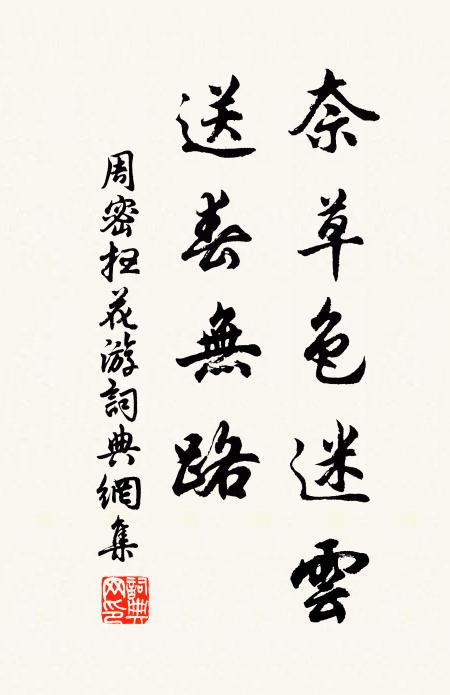 奈草色迷雲
送春無路
周密掃花游詞典網集
詞典网印